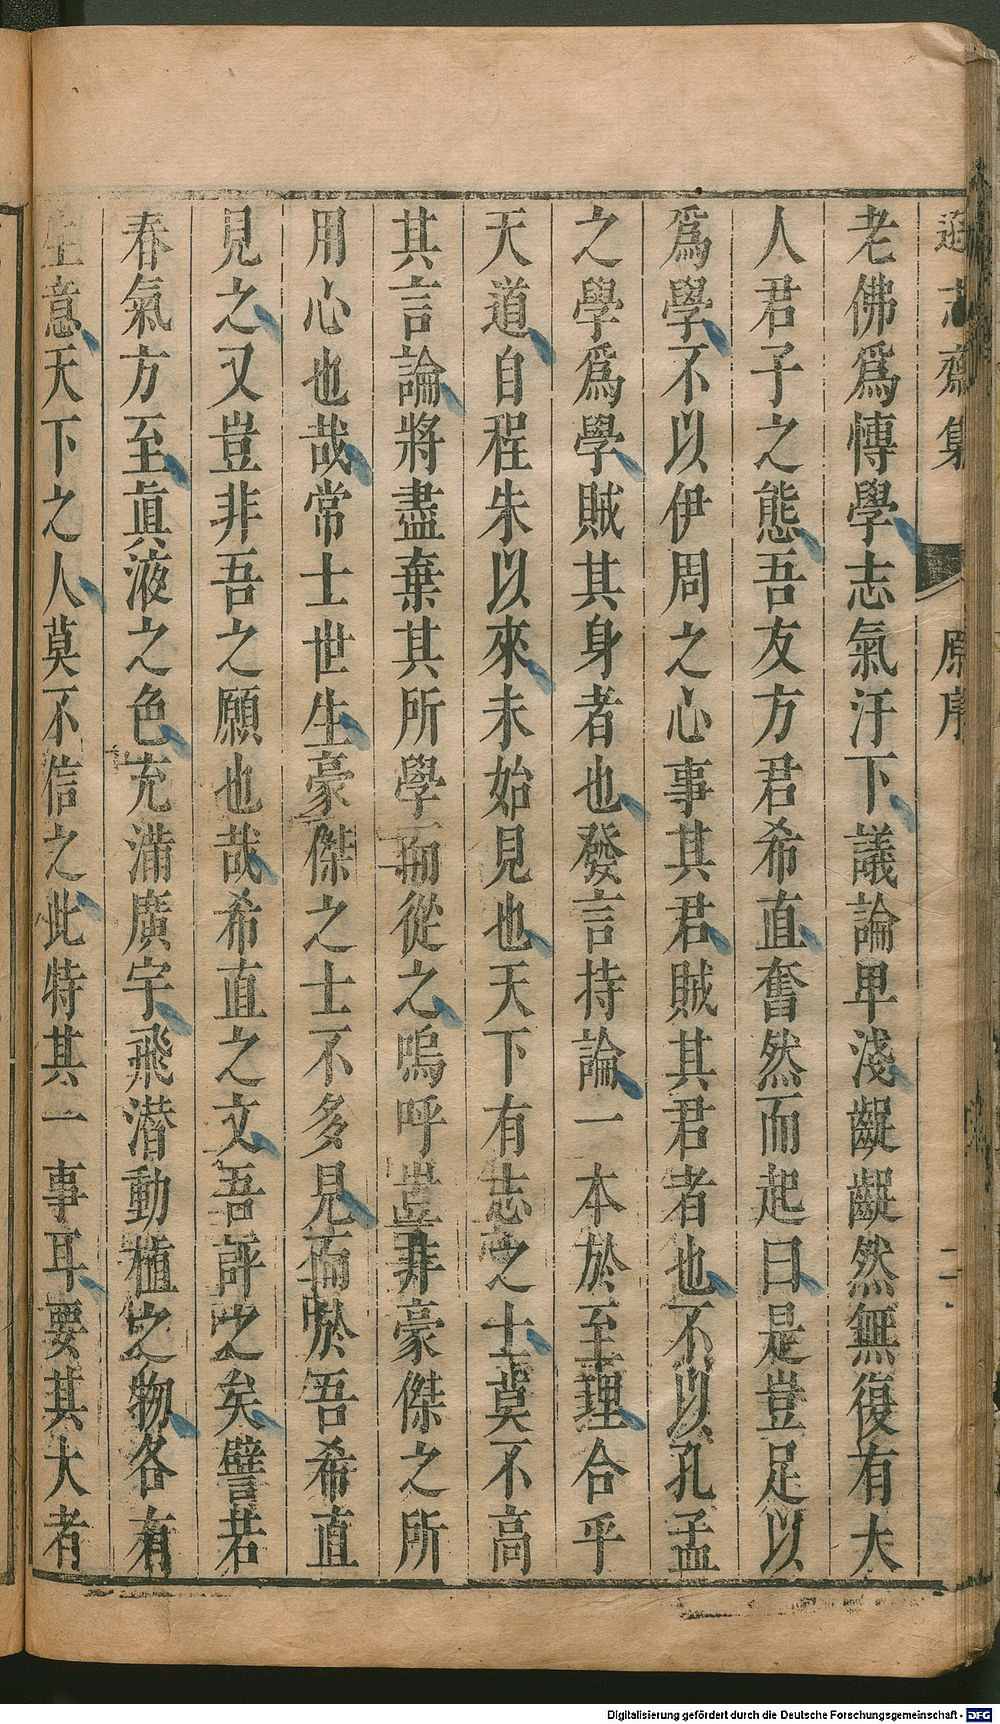 遜志齋集 原序 二
老佛爲慱學志氣汙下議論卑淺齷齪然無復有大
人君子之態吾友方君希直奮然而起曰是豈足以
爲學不以伊周之心事其君賊其君者也不以孔孟
之學爲學賊其身者也發言持論一本於至理合乎
天道自程朱以來未始見也天下有志之士莫不高
其言論將盡棄其所學而從之嗚呼豈非豪傑之所
用心也哉常士世生豪傑之士不多見而於吾希直
見之又豈非吾之願也哉希直之文吾評之矣譬若
春氣方至眞液之色充滿廣宇飛潛動植之物各有
生意天下之人莫不信之此特其一事耳要其大者
Digitalisierung gefördert durch die Deutsche Forschungsgemeinschaft - DFG